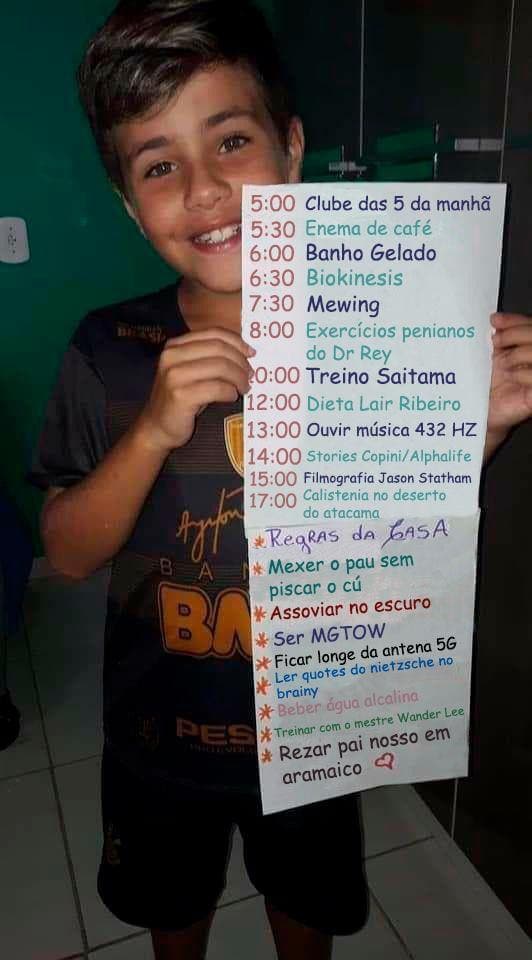 5:00 Clube das 5 da manhã
5:30 Enema de café
6:00 Banho Gelado
6:30 Biokinesis
7:30 Mewing
8:00 Exercícios penianos
do Dr Rey
20:00 Treino Saitama
12:00 Dieta Lair Ribeiro
13:00 Ouvir música 432 HZ
14:00 Stories Copini/Alphalife
15:00 Filmografia Jason Statham
17:00 Calistenia no deserto
do atacama
* Regras da CASA
* Mexer o pau sem
piscar o cú
* Assoviar no escuro
* Ser MGTOW
* Ficar longe da antena 5G
* Ler quotes do nietzsche no
brainy
* Beber água alcalina
* Treinar com o mestre Wander Lee
* Rezar pai nosso em
aramaico
Ayrton
BAN
BA
PES